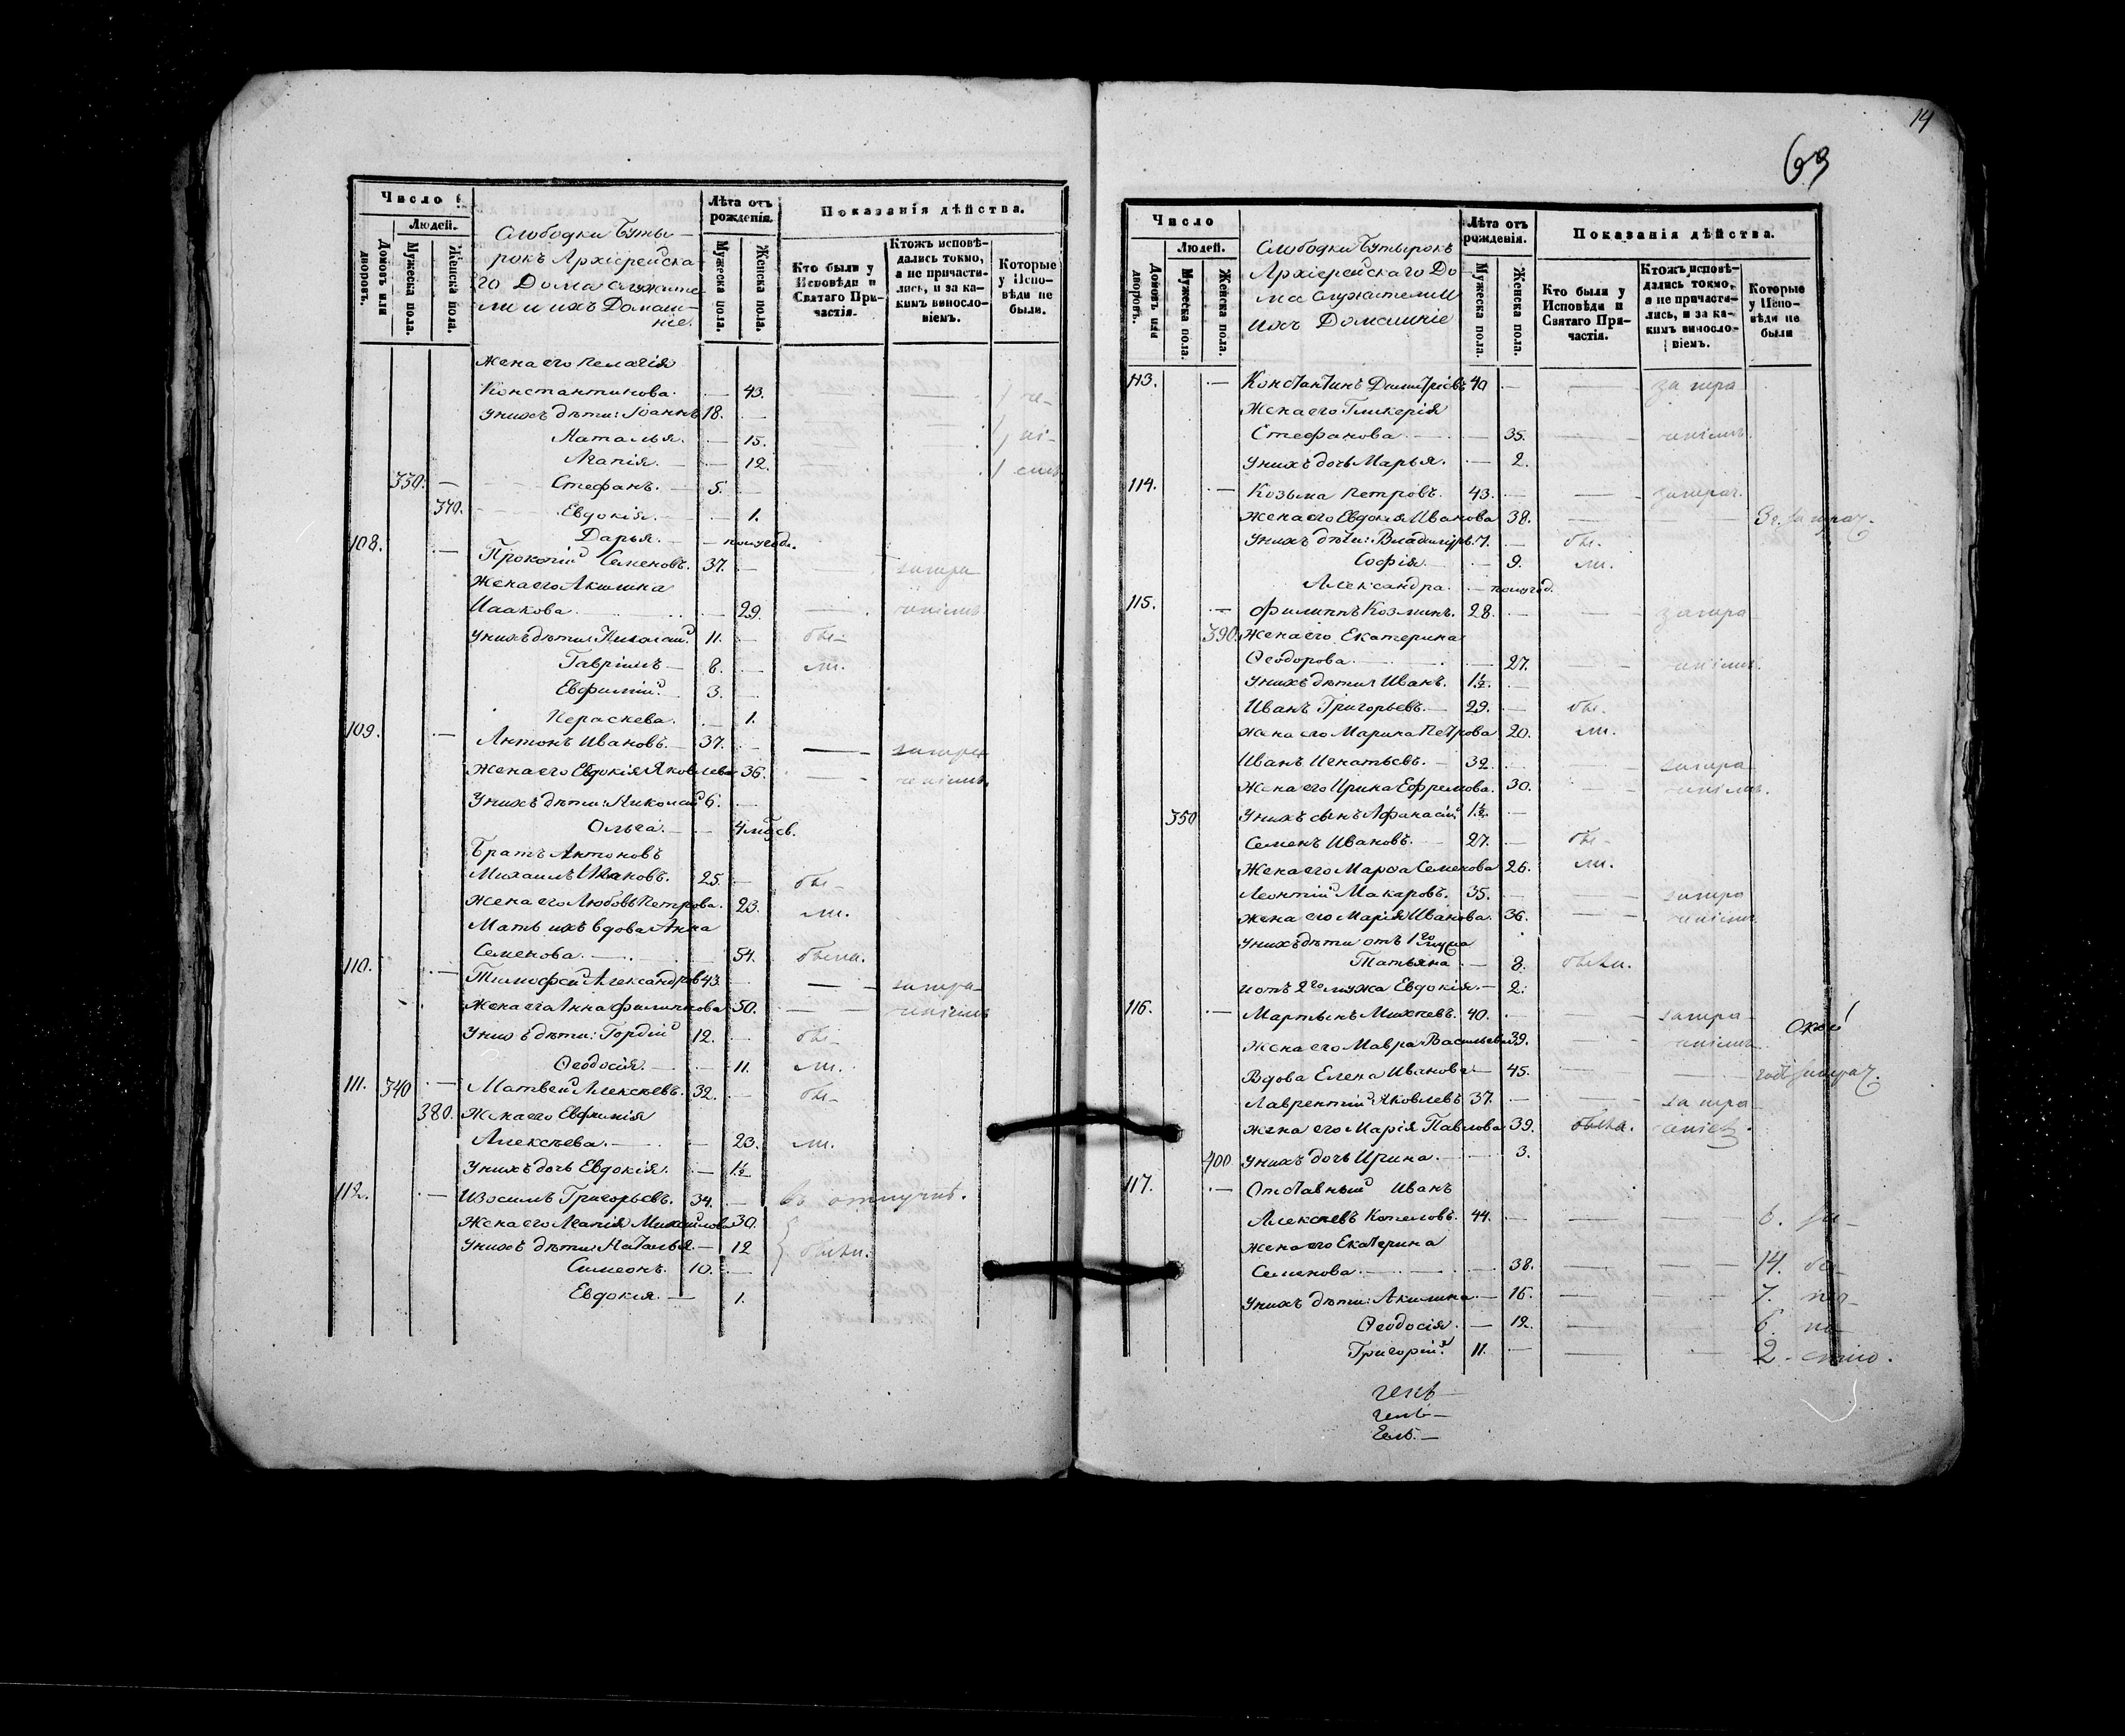 14
69
Число
Людей.
Домовъ или дворовъ.
Мужеска пола.
Женска пола.
Слободки Буты-
рокъ Архіерейска-
го Дома служите
ли и ихъ Домаш-
ніе.
Лѣта отъ рожденія.
Мужеска пола.
Женска пола.
Показанія дѣйства.
Кто были у Исповѣди и Святаго При-частія.
Ктожъ исповѣ-дались токмо, а не причасти-лись, и за ка-кимъ винносло-віемъ.
Которые у Испо-вѣди не были.
Жена его Пелагія
Константинова. — 43.
У нихъ дѣти: Іоаннъ 18. —
Наталья. — 15.
Агапія. — 12.
330. — Стефанъ. 5. —
370. Евдокія. — 1.
Дарья. — полугода.
108. — Прокопій Семеновъ. 37. —
Жена его Акилина
Исакова — 29.
У нихъ дѣти: Николай. 11. — бы-
Гавріилъ — 8. — ли.
Евфимій. 3. —
Параскева. — 1.
109. — Антонъ Ивановъ. 37. —
Жена его Евдокія Яковлева 36.
У нихъ дѣти: Николай 6. —
Ольга. — 4 мѣсяц.
Братъ Антоновъ
Михаилъ Ивановъ. 25. — бы-
Жена его Любовь Петрова. 23. ли.
Мать ихъ вдова Анна
Семенова. — 54. была.
110. — Тимофей Александровъ 43. —
Жена его Анна Филиппова 50.
У нихъ дѣти: Гордій 12. — бы-
Ѳеодосія. — 11. ли.
111. 340 — Матвей Алексѣевъ. 32. — бы-
380. Жена его Евфимія
Алексѣева. — 23. ли.
У нихъ дочь Евдокія. — 1½
112. — Изосимъ Григорьевъ. 34. — въ отлучкѣ.
Жена его Агапія Михайлова 30.
У нихъ дѣти: Наталья. — 12 были.
Симеонъ. 10. —
Евдокія. — 1.
Число
Людей.
Домовъ или дворовъ.
Мужеска пола.
Женска пола.
Слободки Бутырокъ
Архіерейскаго До
ма служители и
ихъ Домашніе
Лѣта отъ рожденія.
Мужеска пола.
Женска пола.
Показанія дѣйства.
Кто были у Исповѣди и Святаго При-частія.
Ктожъ исповѣ-дались токмо, а не причасти-лись, и за ка-кимъ винносло-віемъ.
Которые у Испо-вѣди не были
113. — Константинъ Димитріевъ 40 —
Жена его Гликерія
Стефанова — 35.
У нихъ дочь Марья. — 2.
114. — Козьма Петровъ. 43. —
Жена его Евдокія Иванова 38.
У нихъ дѣти: Владиміръ. 7. — бы-
Софія. — 9. ли.
Александра. — полугод.
115. — Филиппъ Козминъ. 28. —
390. Жена его Екатерина
Ѳеодорова — 27.
У нихъ дѣти: Иванъ. 1½. —
Иванъ Григорьевъ. 29. — бы-
Жена его Марина Петрова 20. ли.
Иванъ Игнатьевъ. 32. —
Жена его Ирина Ефремова. 30.
350 У нихъ сынъ Афанасій 1½. —
Семенъ Ивановъ. 27. — бы-
Жена его Марѳа Семенова 26. ли.
Леонтій Макаровъ. 35. —
Жена его Марія Иванова. 36.
У нихъ дѣти отъ 1го мужа
Татьяна — 8. были.
и отъ 2го мужа Евдокія. — 2.
116. — Мартынъ Михеевъ. 40. —
Жена его Мавра Васильева 39.
Вдова Елена Иванова — 45.
Лаврентій Яковлевъ 37. —
Жена его Марія Павлова 39. была.
400 У нихъ дочь Ирина. — 3.
117. — Отставный Иванъ
Алексѣевъ Копыловъ. 44. — 6.
Жена его Екатерина
Семенова — 38. 14.
У нихъ дѣти: Акилина — 16. 7.
Ѳеодосія. — 12. 6.
Григорій. 11. — 2.